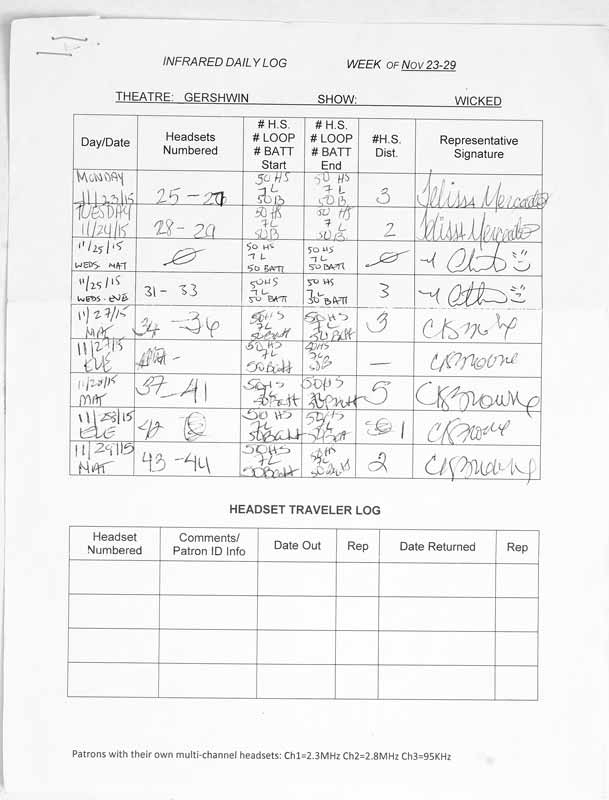 INFRARED DAILY LOG WEEK OF NOV 23-29
THEATRE: GERSHWIN SHOW: WICKED
Day/Date
Headsets
Numbered
# H.S.
# LOOP
# BATT
Start
# H.S.
# LOOP
# BATT
End
#H.S.
Dist.
Representative
Signature
MONDAY
11/23/15
25 - 27
50 HS
7 L
50 B
50 HS
7 L
50 B
3
Jelissa Mercado
TUESDAY
11/24/15
28 - 29
50 HS
7L
50 B
50 HS
7 L
50 B
2
Jelissa Mercado
11/25/15
WEDS MAT
Ø
50 HS
7 L
50 BATT
50 HS
7 L
50 BATT
Ø
11/25/15
WEDS - EVE
31 - 33
50HS
7L
50 BATT
50 HS
7L
50 BATT
3
11/27/15
MAT
34 - 36
50HS
7L
50Batt
50HS
7L
50 Batt
3
11/27/15
EVE
-
50HS
7L
50Batt
50HS
7L
50B
—
CKBrowne
11/28/15
MAT
37 - 41
50HS
7L
50Batt
50HS
7L
50Batt
5
CKBrowne
11/28/15
EVE
42
50 HS
7L
50Batt
50HS
7L
50Batt
1
CKBrowne
11/29/15
MAT
43 - 44
50HS
7L
50Batt
50HS
7L
50Batt
2
CKBrowne
HEADSET TRAVELER LOG
Headset
Numbered
Comments/
Patron ID Info
Date Out
Rep
Date Returned
Rep
Patrons with their own multi-channel headsets: Ch1=2.3MHz Ch2=2.8MHz Ch3=95KHz